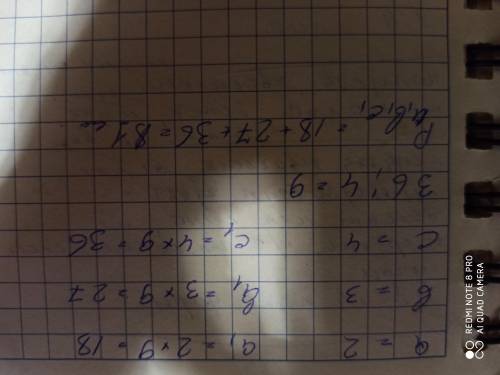 a = 2 a₁ = 2 × 9 = 18
в = 3 в₁ = 3 × 9 = 27
c = 4 c₁ = 4 × 9 = 36
36 : 4 = 9
P a₁в₁c₁ = 18 + 27 + 36 = 81 см
REDMI NOTE 8 PRO
AI QUAD CAMERA